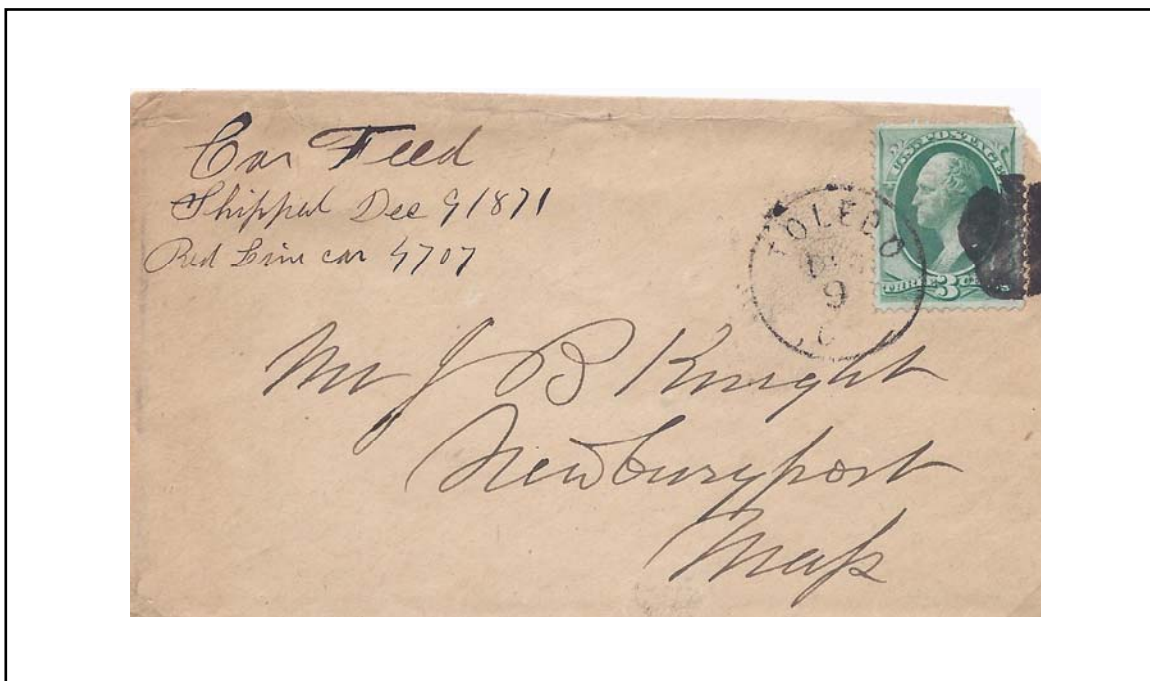 Car Feed
Shipped Dec 9 1871
Red Line car 4707
U.S. POSTAGE
THREE 3 CENTS
TOLEDO
DEC
9
O
Mr J B Knight
Newburyport
Mass